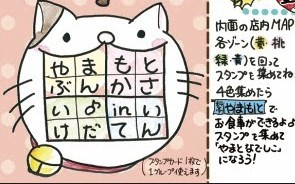 やまもと
ぶんかさ
い♪inい
けだたん
スタンプカード1枚で
1グループ使えます
内面の店内MAP
各ゾーン(黄・桃
緑・青)を回って
スタンプを集めてね
4色集めたら
やまもとで
お食事ができるよ♪
スタンプを集めて
"やまとなでしこ"
になろう!